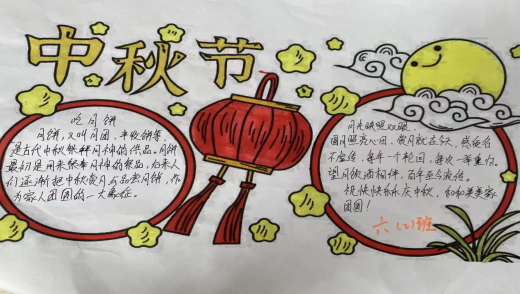 中秋节
吃月饼
月饼，又叫月团、丰收饼等，
是古代中秋祭拜月神的供品。月饼
最初是用来祭奉月神的祭品，后来人
们逐渐把中秋赏月与品尝月饼，作
为家人团圆的一大象征。
月光映照双眼，
圆月照亮心田，赏月就在今天，感受着
不虚传，每年一个轮回，每次一等重白。
望月饮酒相伴，百年至今流传。
祝快快乐乐庆中秋，和和美美家
团圆！
六（2）班